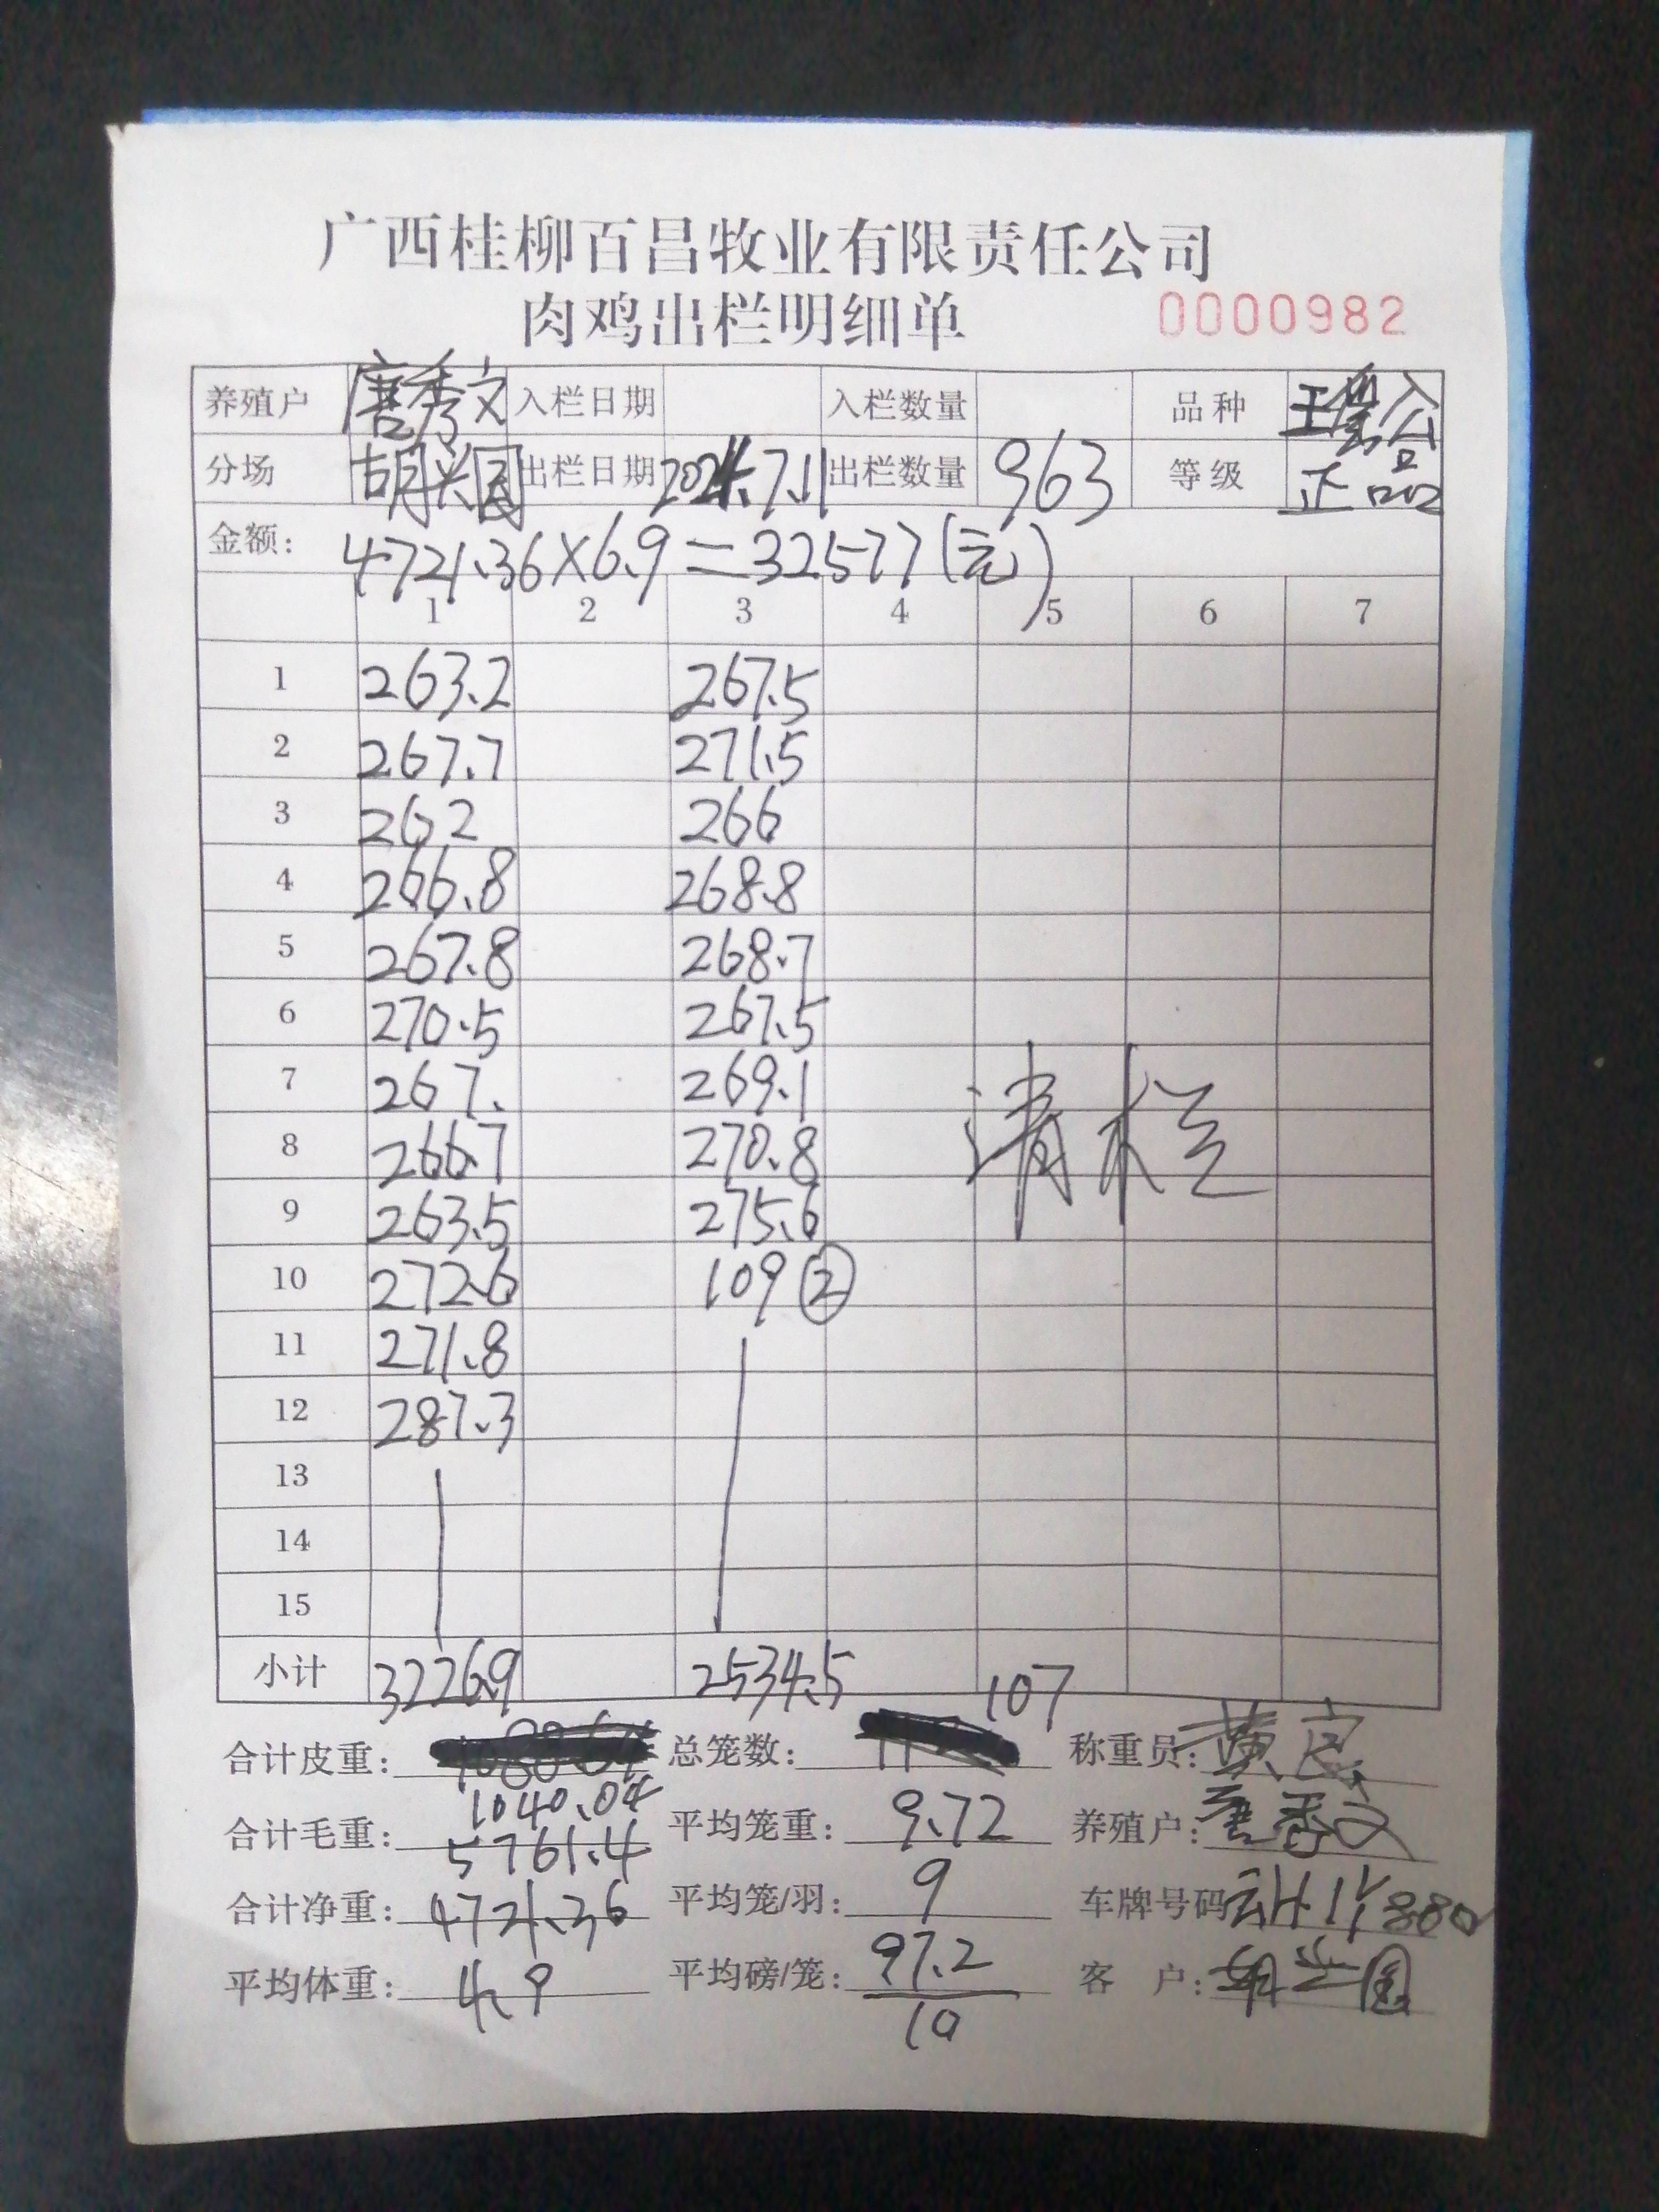 广西桂柳百昌牧业有限责任公司
肉鸡出栏明细单 0000982
养殖户 唐秀文 入栏日期 入栏数量 品种
分场 胡兴国 出栏日期 2024.7.11 出栏数量 963 等级 正品
金额: 4721.36×6.9=32577(元)
1 2 3 4 5 6 7
1 263.2 267.5
2 267.7 271.5
3 262 266
4 266.8 268.8
5 267.8 268.7
6 270.5 267.5
7 267. 269.1
8 266.7 270.8
9 263.5 275.6
清栏
10 272.6 109 ②
11 271.8
12 287.3
13
14
15
小计 3226.9 2534.5 107
合计皮重: 总笼数: 称重员: 黄良
1040.04
合计毛重: 5761.4 平均笼重: 9.72 养殖户: 唐秀文
合计净重: 4721.36 平均笼/羽: 9 车牌号码
平均体重: 4.9 平均磅/笼: 97.2 客 户: 胡兴国
10